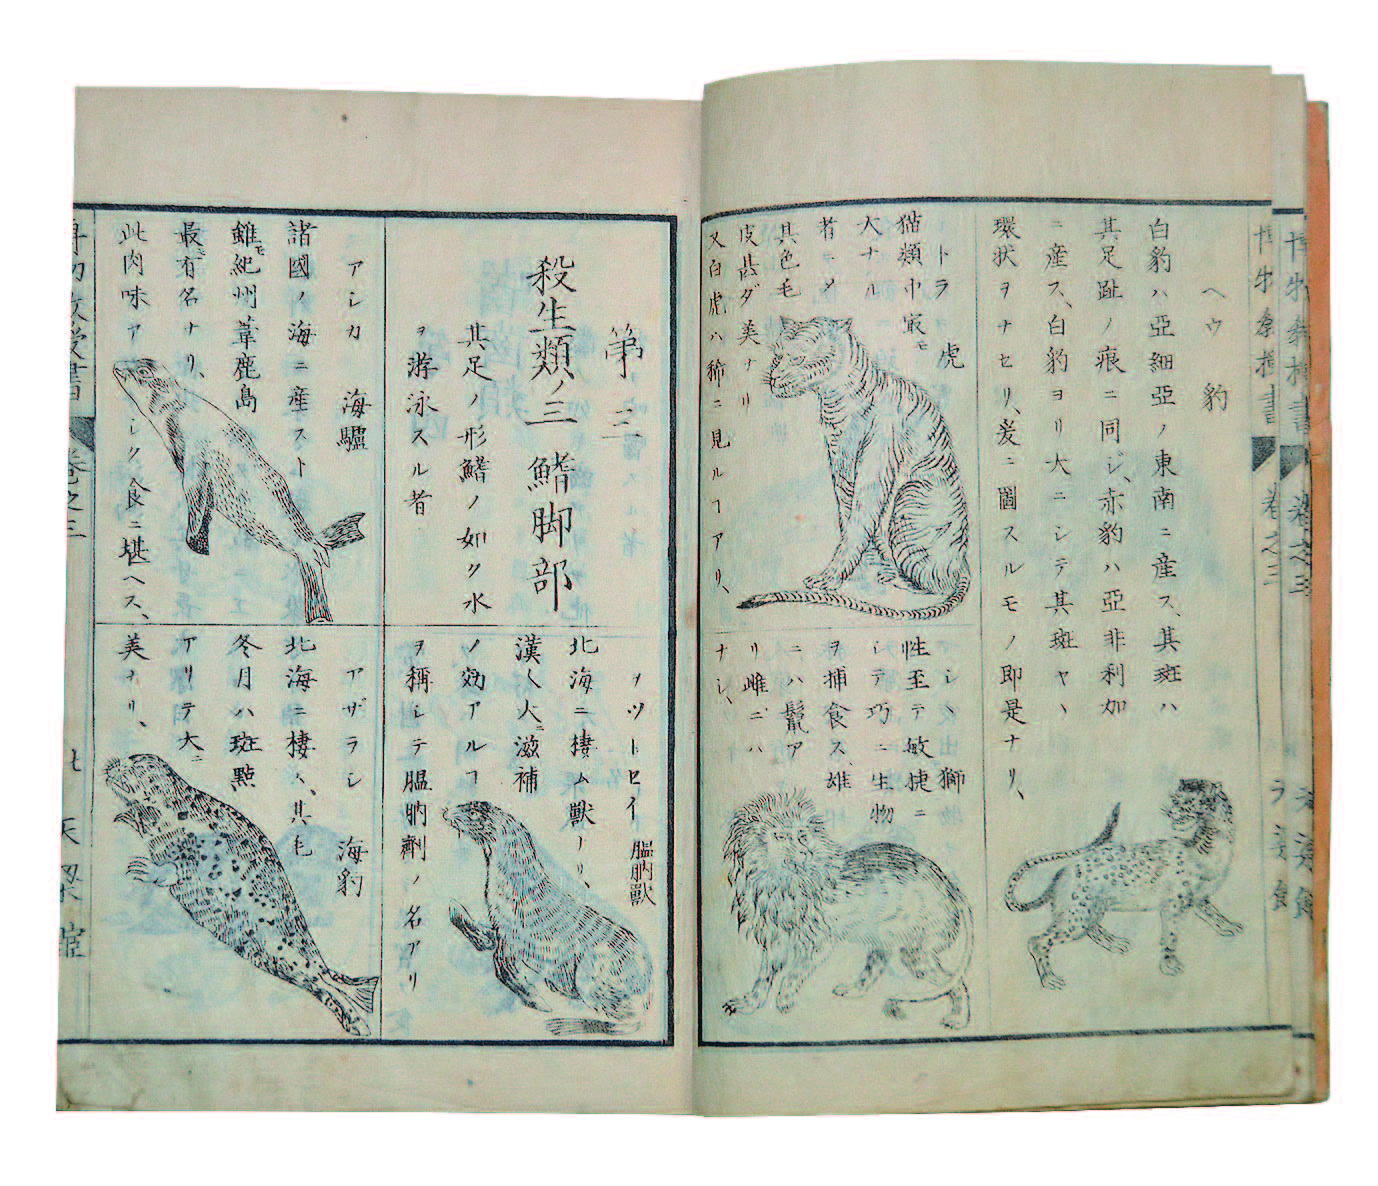 ヘウ 豹
白豹ハ亞細亞ノ東南ニ産ス、其斑ハ
其足趾ノ痕ニ同ジ、赤豹ハ亞非利加
ニ産ス、白豹ヨリ大ニシテ其斑ヤヽ
環状ヲナセリ、爰ニ圖スルモノ即是ナリ、
トラ 虎
猫類中冣モ
大ナル
者ニシテ
其色毛
皮甚ダ美ナリ
又白虎ハ稀ニ見ルヿアリ、
シヽ 獅
性至テ敏捷ニ
シテ巧ニ生物
ヲ捕食ス、雄
ニハ鬣ア
リ雌ニハ
ナシ、
第三
殺生類ノ三 鰭脚部
其足ノ形鰭ノ如ク水
ヲ游泳スル者
ヲツトロイ 膃肭獸
北海ニ棲ム獸ナリ、
漢人大ニ滋補
ノ効アルヿ
ヲ稱シテ膃肭劑ノ名アリ
アシカ 海驢
諸國ノ海ニ産スト
雖モ紀州葦鹿島
最モ有名ナリ、
此肉味ア シク食ニ堪ヘス、
アザラシ 海豹
北海ニ棲ム、其毛
冬月ハ斑點
アリテ大ニ
美ナリ、
博物教授書
卷之三